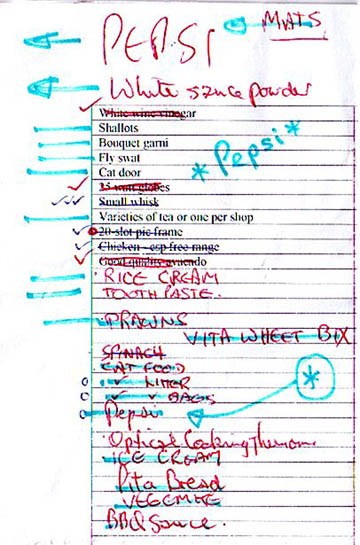 MATS
PEPSI
White sauce powder
White wine vinegar
Shallots
Bouquet garni
Fly swat
* Pepsi *
Cat door
35 watt globes
Small whisk
Varieties of tea or one per shop
20-slot pic frame
Chicken - esp free range
Good quality avacado
RICE CREAM
TOOTH PASTE.
PRAWNS
VITA WHEET BIX
SPINACH
CAT FOOD
✓ LITTER
✓ ✓ BAGS
*
Pepsi
Optical Cooking Thermom.
ICE CREAM
Pita Bread
VEGEMITE
BBQ Sauce.